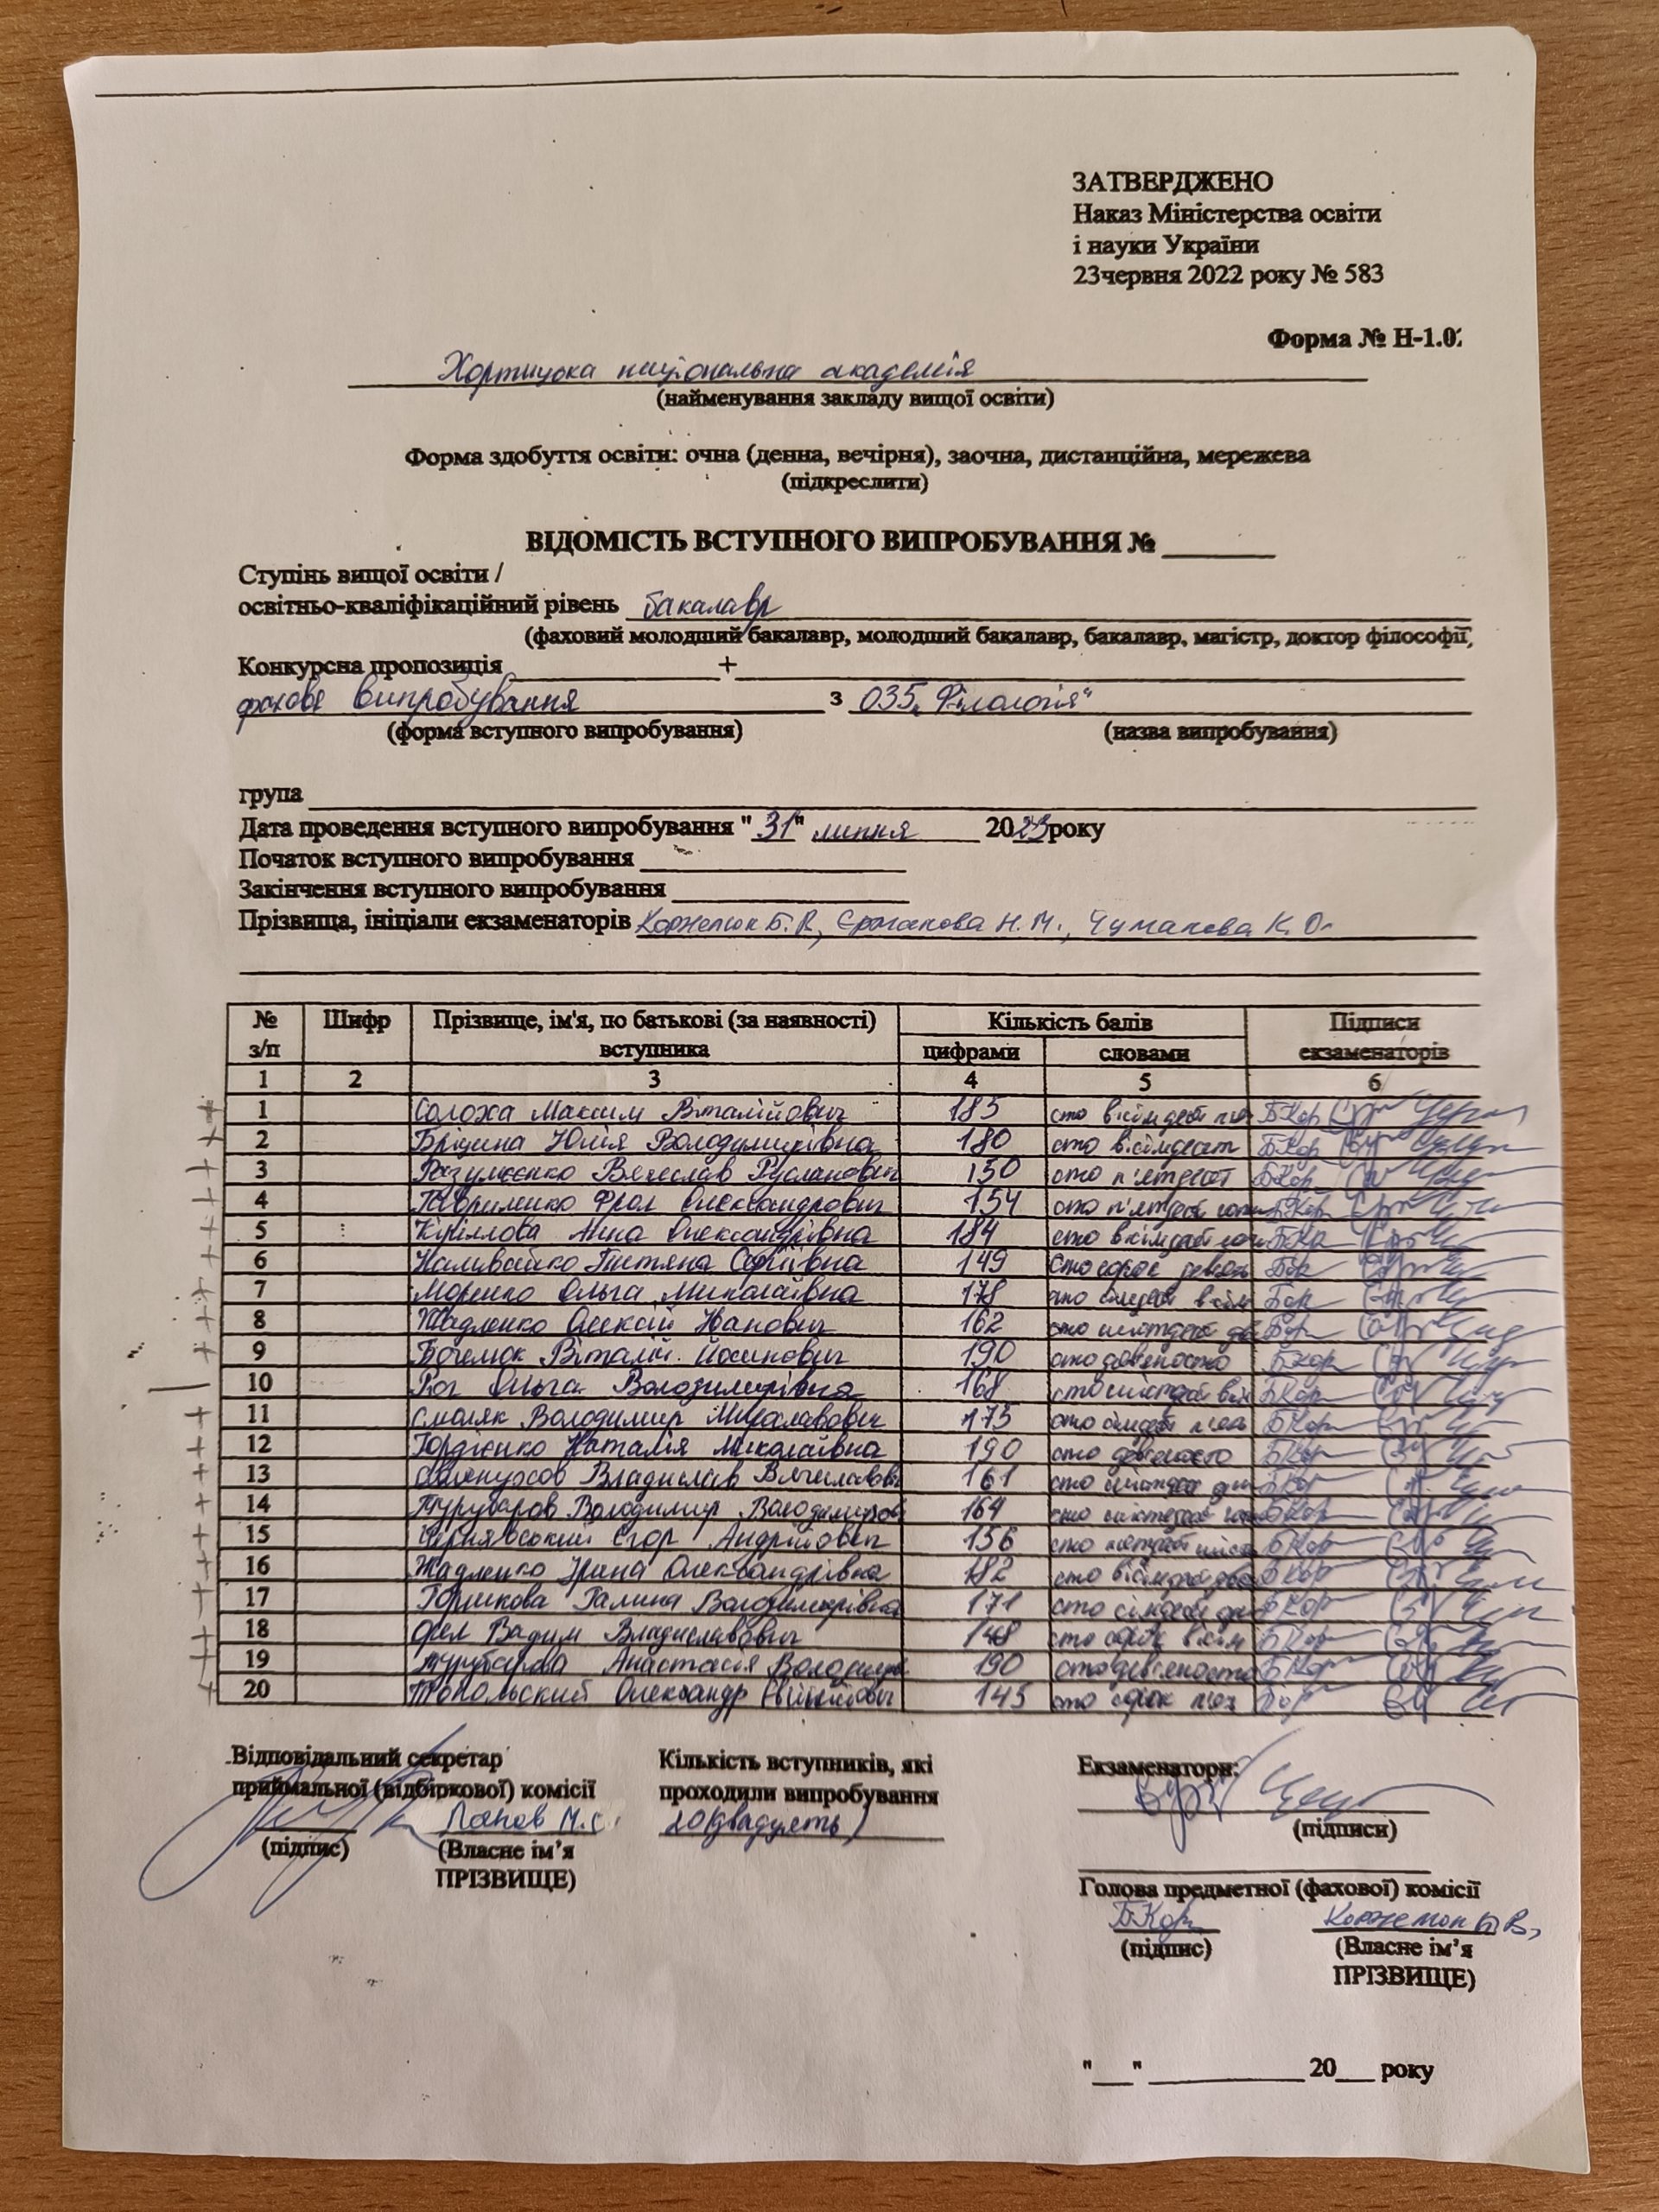 ЗАТВЕРДЖЕНО
Наказ Міністерства освіти
і науки України
23червня 2022 року № 583
Форма № Н-1.0
Хортицька національна академія
(найменування закладу вищої освіти)
Форма здобуття освіти: очна (денна, вечірня), заочна, дистанційна, мережева
(підкреслити)
ВІДОМІСТЬ ВСТУПНОГО ВИПРОБУВАННЯ №
Ступінь вищої освіти /
освітньо-кваліфікаційний рівень бакалавр
(фаховий молодший бакалавр, молодший бакалавр, бакалавр, магістр, доктор філософії
Конкурсна пропозиція +
фахове випробування з 035 „Філологія"
(форма вступного випробування) (назва випробування)
група
Дата проведення вступного випробування "31" липня 2023 року
Початок вступного випробування
Закінчення вступного випробування
Прізвища, ініціали екзаменаторів Єрмакова Н.М., Чумакова К.О.
№ з/п Шифр Прізвище, ім'я, по батькові (за наявності) вступника Кількість балів Підписи екзаменаторів
цифрами словами
1 2 3 4 5 6
1 Солоха Максим Віталійович 185 сто вісімдесят
2 Юлія Володимирівна 180 сто вісімдесят
3 Вячеслав Русланович 150 сто п'ятдесят
4 Гавриленко Фрол Олександрович 154 сто п'ятдесят
5 Кіріллова Анна Олександрівна 184 сто вісімдесят
6 Наливайко Тетяна Сергіївна 149 сто сорок девять
7 Моренко Ольга Миколаївна 178 сто сімдесят вісім
8 Жадленко Олексій Іванович 162 сто шістдесят
9 Віталій Йосипович 190 сто девяносто
10 Рог Ольга Володимирівна 168 сто шістдесят
11 Смоляк Володимир Мирославович 175 сто сімдесят
12 Гордієнко Наталія Миколаївна 190 сто девяносто
13 Владислав Вячеславович 161 сто шістдесят
14 Турубаров Володимир 164 сто шістдесят
15 Чернявський Єгор Андрійович 156 сто
16 Жадленко Ірина Олександрівна 182 сто вісімдесят
17 Горшкова Галина Володимирівна 171 сто сімдесят
18 Орел Вадим Владиславович 148 сто сорок вісім
19 Турубарова Анастасія 190 сто девяносто
20 Топольский Олександр 145 сто сорок
Відповідальний секретар
приймальної (відбіркової) комісії
М.С.
(підпис) (Власне ім’я
ПРІЗВИЩЕ)
Кількість вступників, які
проходили випробування
20 (двадцять)
Екзаменатори:
(підписи)
Голова предметної (фахової) комісії
(підпис) (Власне ім’я
ПРІЗВИЩЕ)
"___" 20___ року